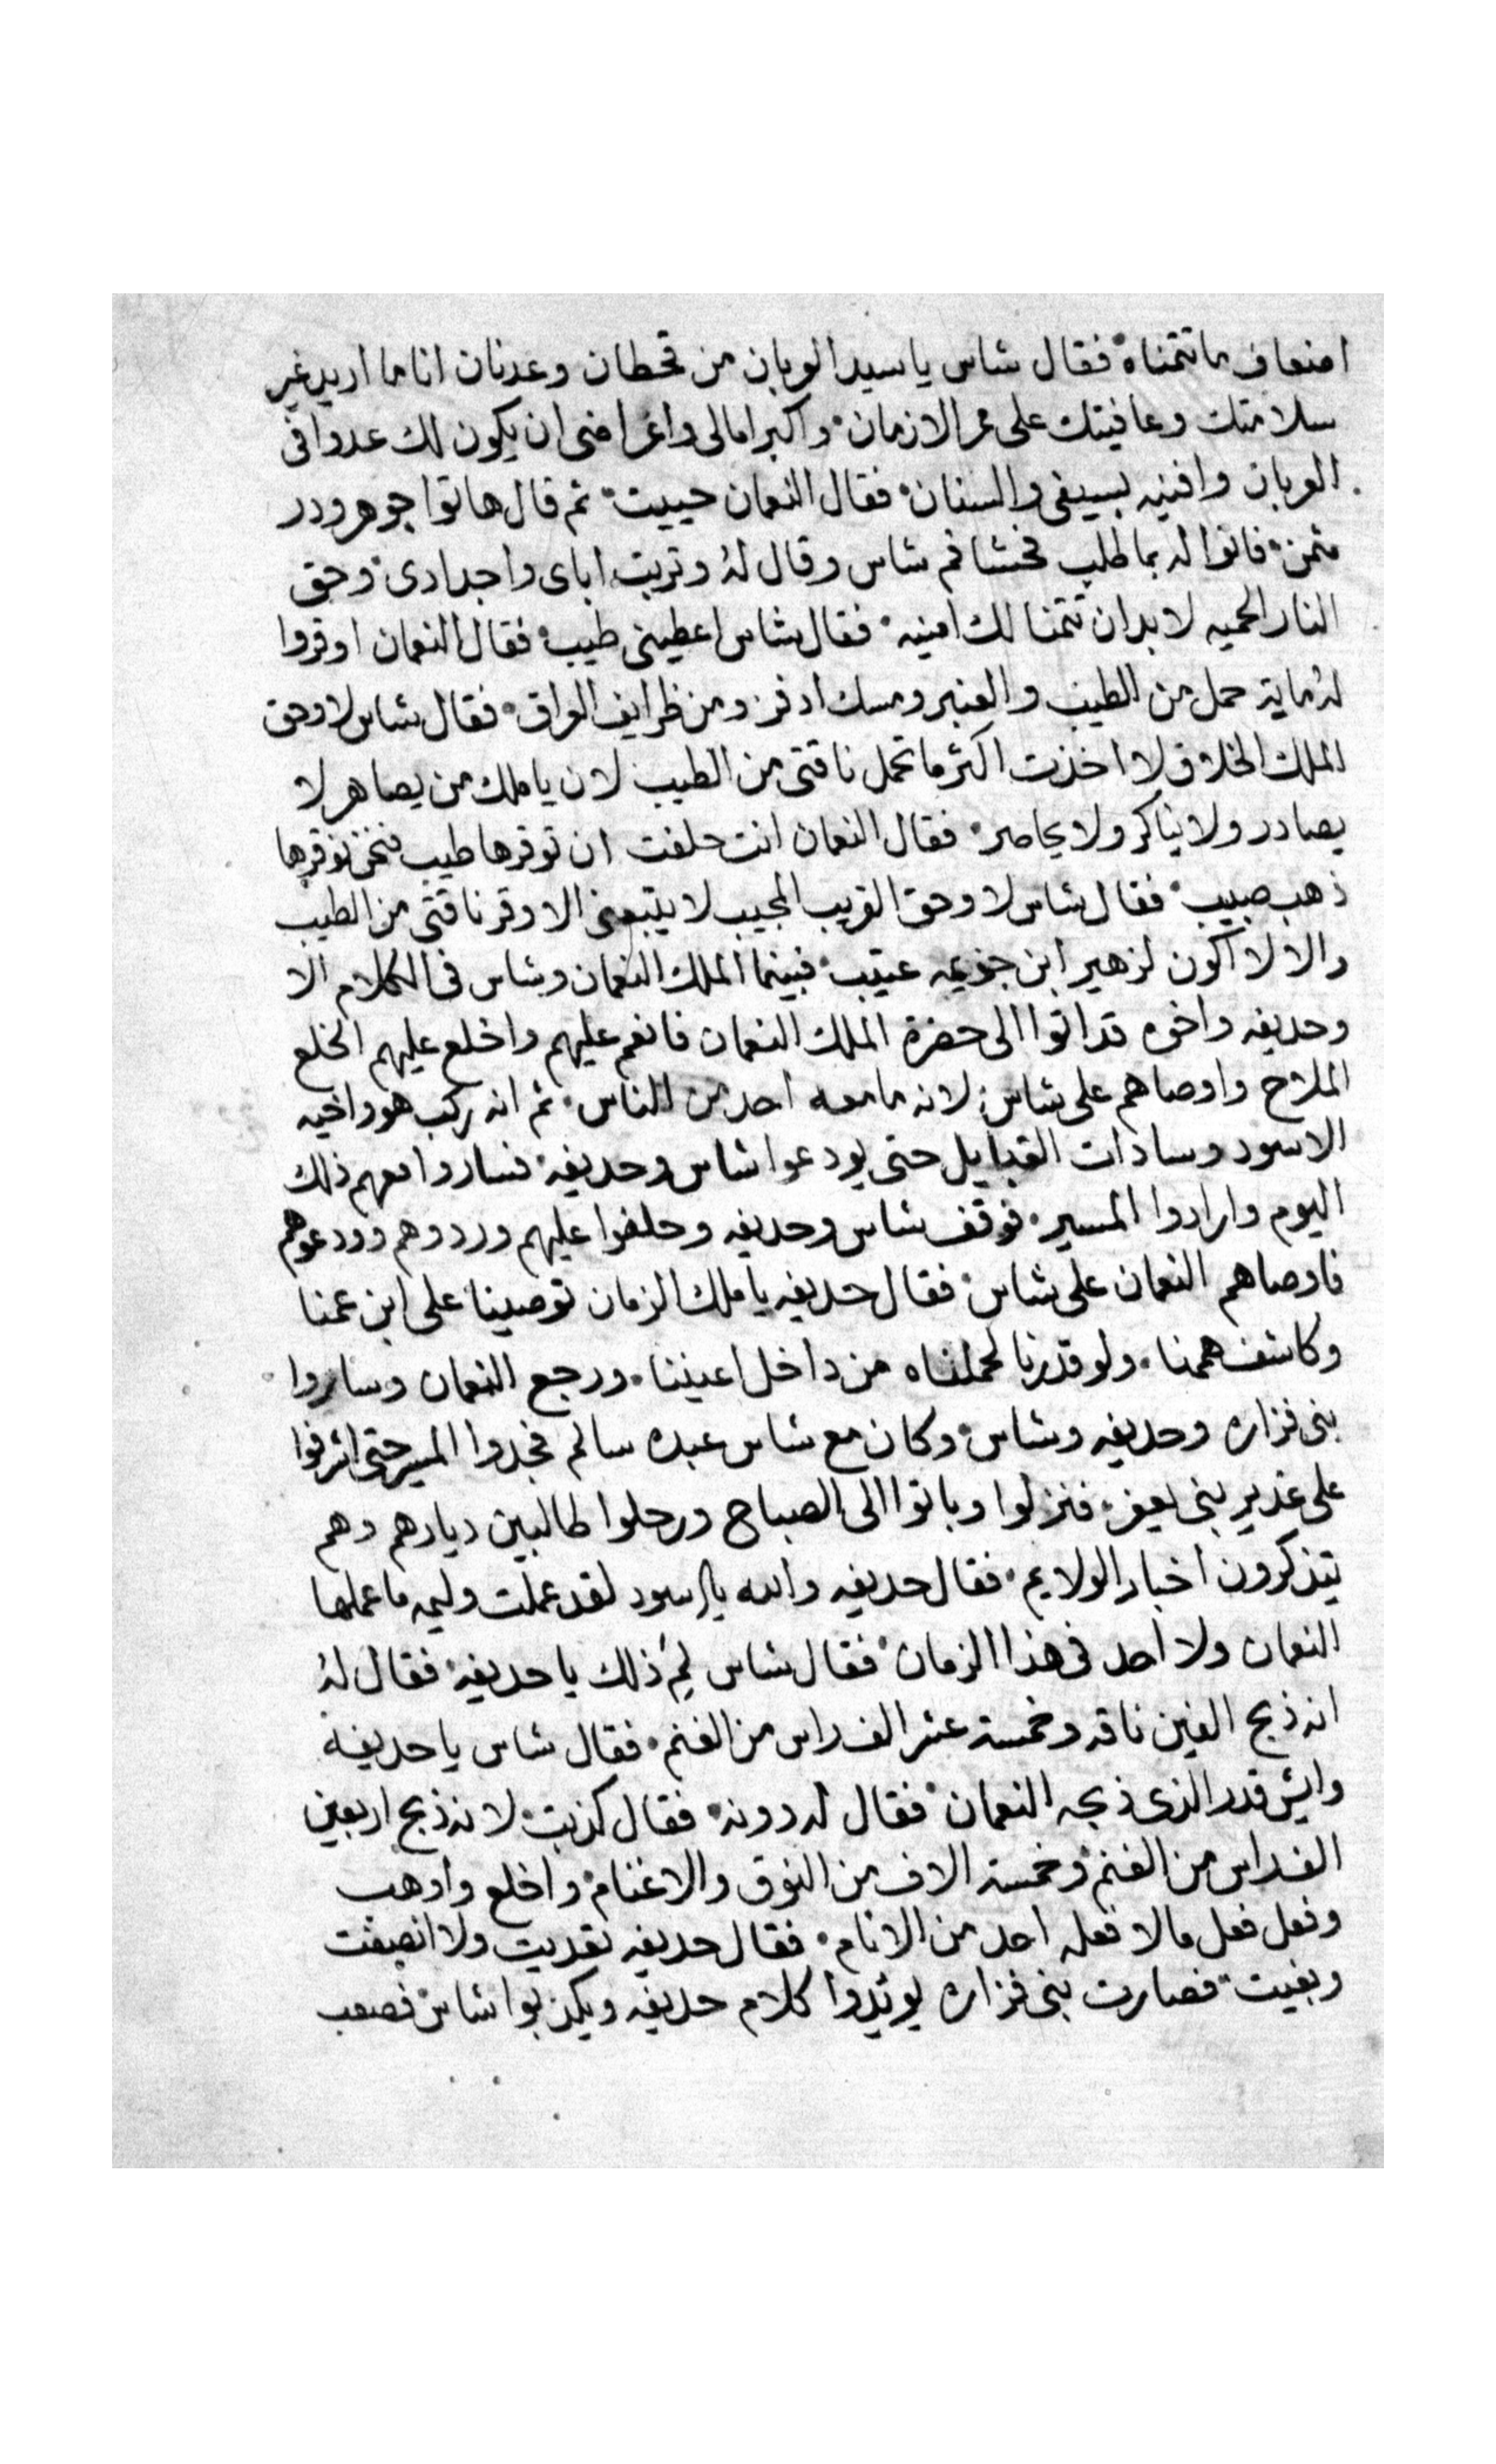 اضعاف ما تتمناه فقال شاس يا سيد العربان من قحطان وعدنان انا ما اريد غير
سلامتك وعافيتك على ممر الازمان واكبر امالى واغراضى ان يكون لك عدوا فى
العربان وافنيه بسيفى والسنان فقال النعمان حييت ثم قال هاتوا جوهر ودر
مثمن فاتوا له بما طلب فحشا فم شاس وقال له وتربت اباى واجدادى وحق
النار الحميه لا بد ان تتمنا لك امنيه فقال شاس اعطينى طيب فقال النعمان اوقروا
له ماية حمل من الطيب والعنبر ومسك ادفر ومن ظرايف العراق فقال شاس لا وحق
الملك الخلاق لا اخذت اكثر ما تحمل ناقتى من الطيب لان يا ملك من يصاهر لا
يصادر ولا يناكر ولا يحاصر فقال النعمان انت حلفت ان توقرها طيب فنحن نوقرها
ذهب صبيب فقال شاس لا وحق القريب المجيب لا يتبعنى الا وقر ناقتى من الطيب
والا لا اكون لزهير ابن جزيمه عتيب فبينما الملك النعمان وشاس فى الكلام الا
وحديفه واخوه قد اتوا الى حضرة الملك النعمان فانعم عليهم واخلع عليهم الخلع
الملاح واوصاهم على شاس لانه ما معه احد من الناس ثم انه ركب هو واخيه
الاسود وسادات القبايل حتى يودعوا شاس وحديفه فساروا معهم ذلك
اليوم وارادوا المسير فوقف شاس وحديفه وحلفوا عليهم ورددوهم وودعوهم
فاوصاهم النعمان على شاس فقال حديفه يا ملك الزمان توصينا على ابن عمنا
وكاشف هممنا ولو قدرنا لحملناه من داخل اعيننا ورجع النعمان وساروا
بنى فزاره وحديفه وشاس وكان مع شاس عبده سالم فجدوا المسير حتى اشرفوا
على غدير بنى فنزلوا وباتوا الى الصباح ورحلوا طالبين ديارهم وهم
يتذكرون اخبار الولايم فقال حديفه والله يا اسود لقد عملت وليمه ما عملها
النعمان ولا احد فى هذا الزمان فقال شاس لم ذلك يا حديفه فقال له
انه ذبح الفين ناقه وخمسة عشر الف راس من الغنم فقال شاس يا حديفة
وايش قدر الذى ذبحه النعمان فقال له دونه فقال كذبت لانه ذبح اربعين
الف راس من الغنم وخمسة الاف من النوق والاغنام واخلع واوهب
وفعل فعل ما لا فعله احد من الانام فقال حديفه تعديت ولا انصفت
وبغيت فصارت بنى فزاره يويدوا كلام حديفه ويكذبوا شاس فصعب